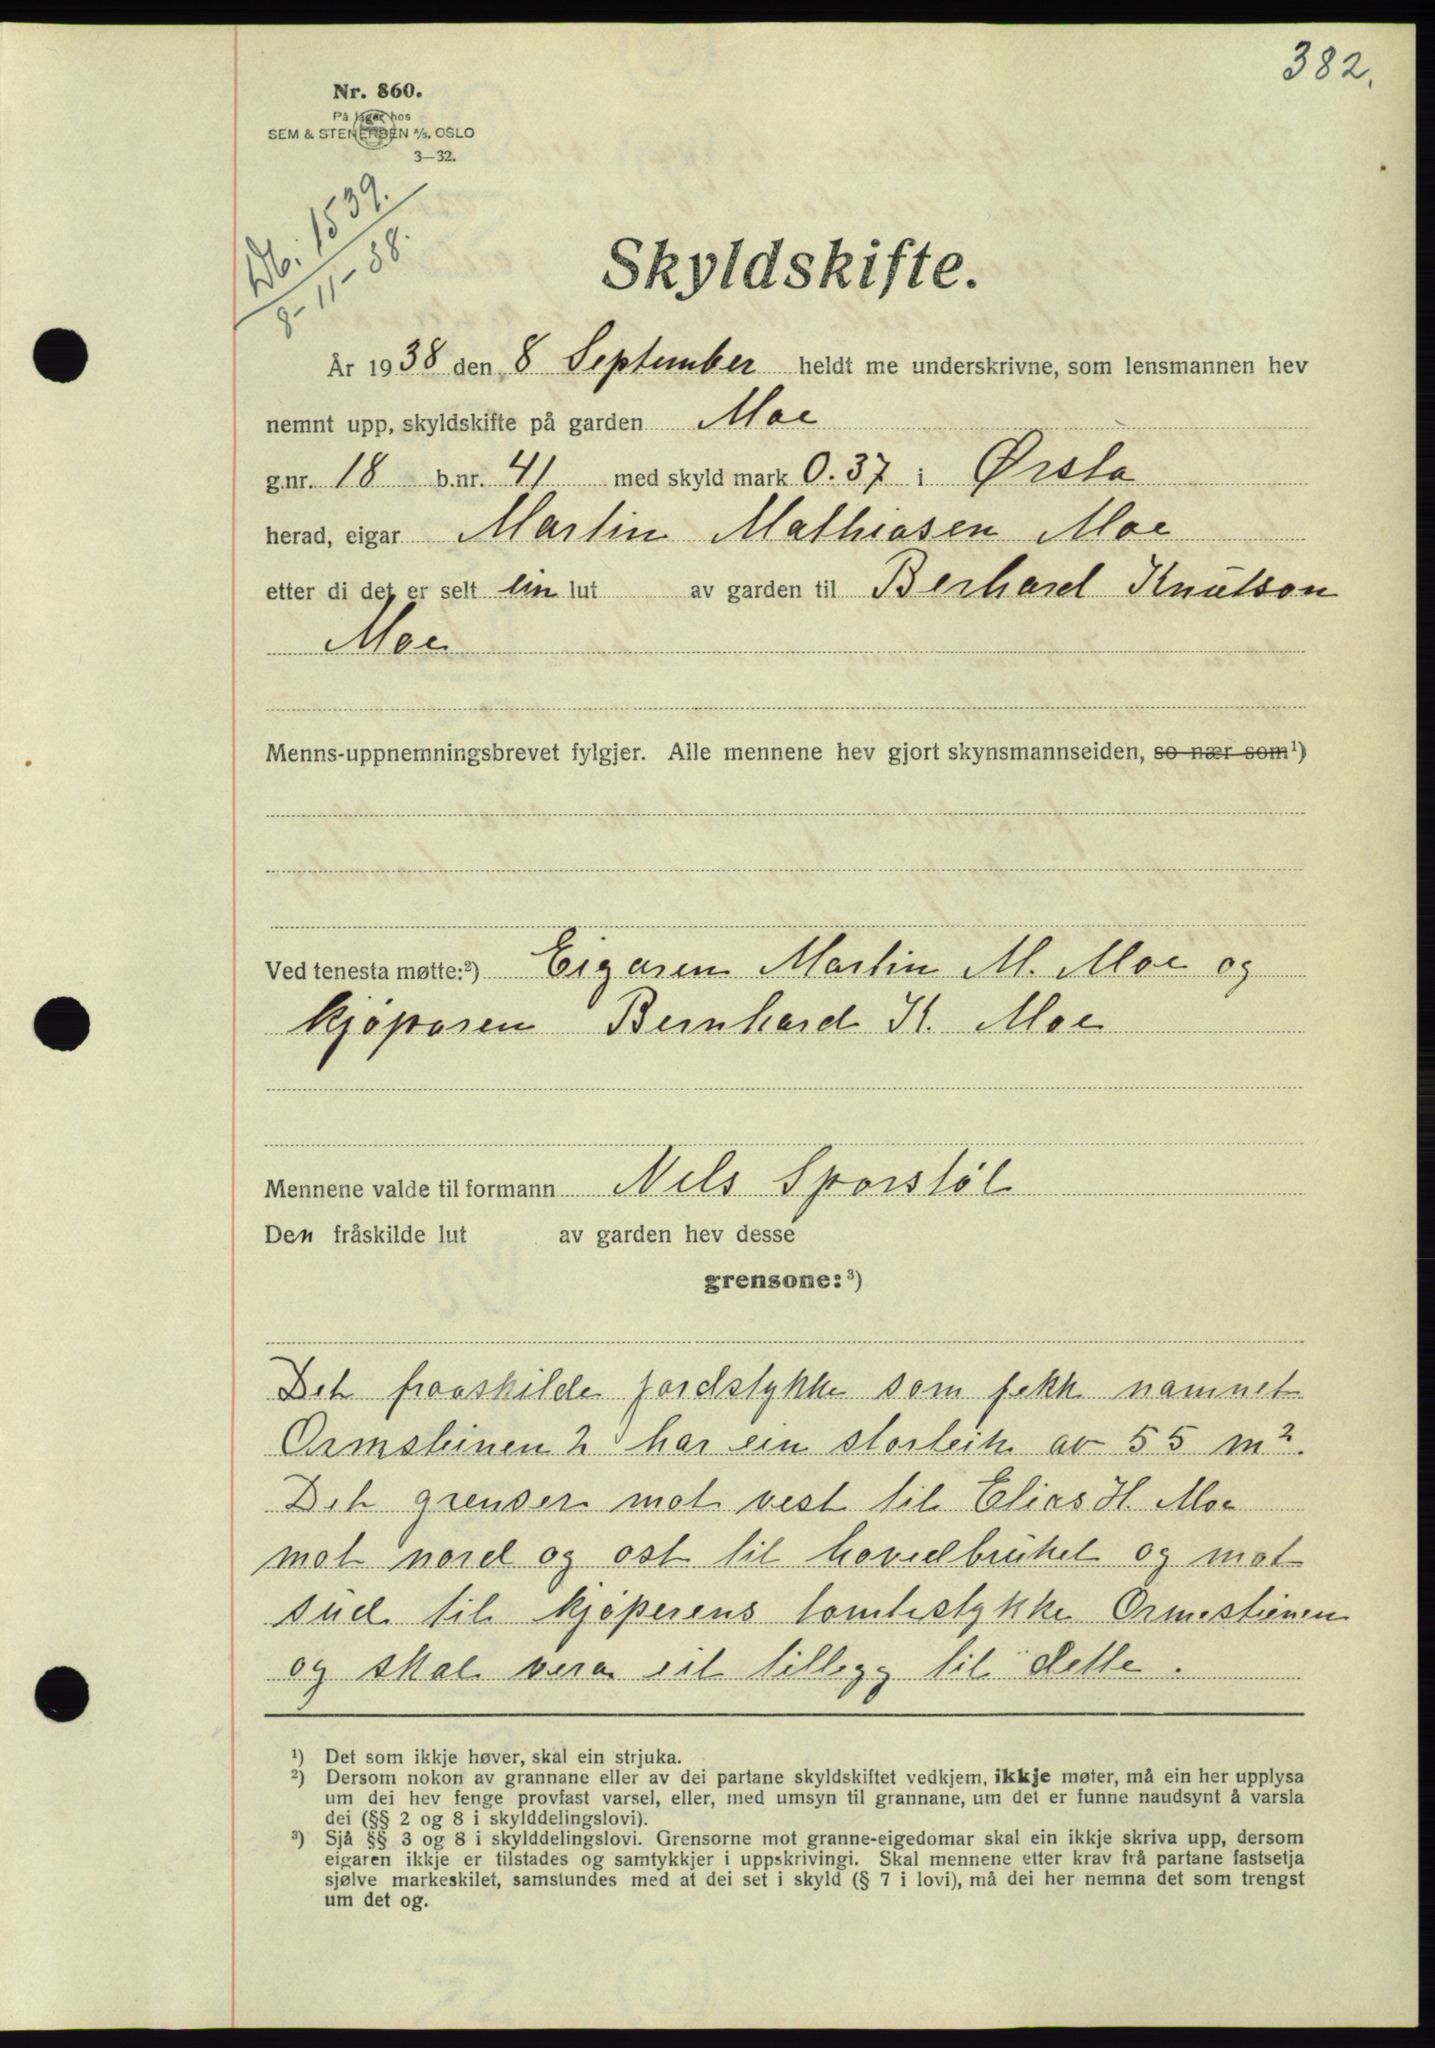 382.
Nr. 860.
På lager hos
SEM & STENERSEN A/S, OSLO
3—32.
Db: 1539.
8-11-38.
Skyldskifte.
År 1938 den 8 September heldt me underskrivne, som lensmannen hev
nemnt upp, skyldskifte på garden Moe
g.nr. 18 b.nr. 41 med skyld mark 0.37 i Ørsta
herad, eigar Martin Mathiasen Moe
etter di det er selt ein lut av garden til Berhard Knutson
Moe
Menns-uppnemningsbrevet fylgjer. Alle mennene hev gjort skynsmannseiden, so nær som¹)
Ved tenesta møtte:²) Eigaren Martin M. Moe og
kjøparen Bernhard K. Moe
Mennene valde til formann Nils Sporstøl
Den fråskilde lut av garden hev desse
grensone:³)
Det fraaskilde jordstykke som fekk namnet
Ormsteinen 2 har ein storleik av 55 m².
Det grenser mot vest til Elias H. Moe
mot nord og ost til hovedbruket og mot
süd til kjøperens tomtestykke Ormesteinen
og skal vera eit tillegg til dette.
¹) Det som ikkje høver, skal ein strjuka.
²) Dersom nokon av grannane eller av dei partane skyldskiftet vedkjem, ikkje møter, må ein her upplysa
um dei hev fenge provfast varsel, eller, med umsyn til grannane, um det er funne naudsynt å varsla
dei (§§ 2 og 8 i skylddelingslovi).
³) Sjå §§ 3 og 8 i skylddelingslovi. Grensorne mot granne-eigedomar skal ein ikkje skriva upp, dersom
eigaren ikkje er tilstades og samtykkjer i uppskrivingi. Skal mennene etter krav frå partane fastsetja
sjølve markeskilet, samstundes med at dei set i skyld (§ 7 i lovi), må dei her nemna det som trengst
um det og.